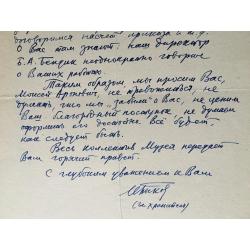 договоримся насчёт приказа и т.д.
О Вас там знают. наш директор
Б.А. Бендик неоднократно говорил
о Ваших работах.
Таким образом, мы просим Вас,
Моисей, не тревожиться, не
думать, что мы „забыли“ о Вас, не ценим
Ваш благородный поступок, не думаем
оформить его достойно. Всё будет
как следует быть.
Весь коллектив Музея передаёт
Вам горячий привет.
С глубоким уважением к Вам